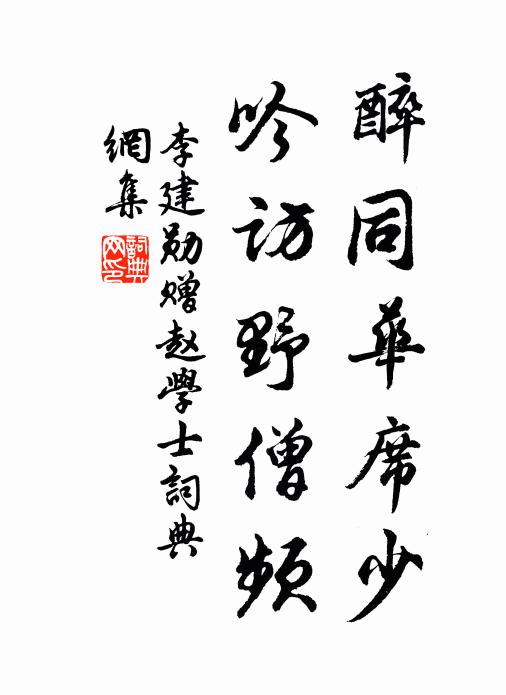 醉同華席少
吟訪野僧頻
李建勋贈赵學士詞典
網集
詞典
网印